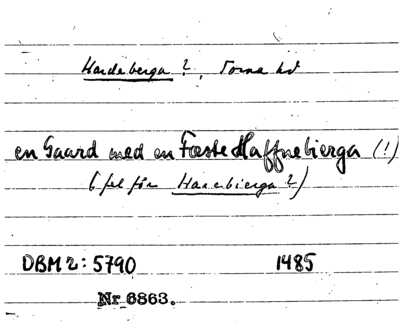 Hardeberga ?, Torna hd
en Gaard med en Fæste Haffnebierga (!)
(fel för Harebierga ?)
DBM 2: 5790 1485
Nr 6863.